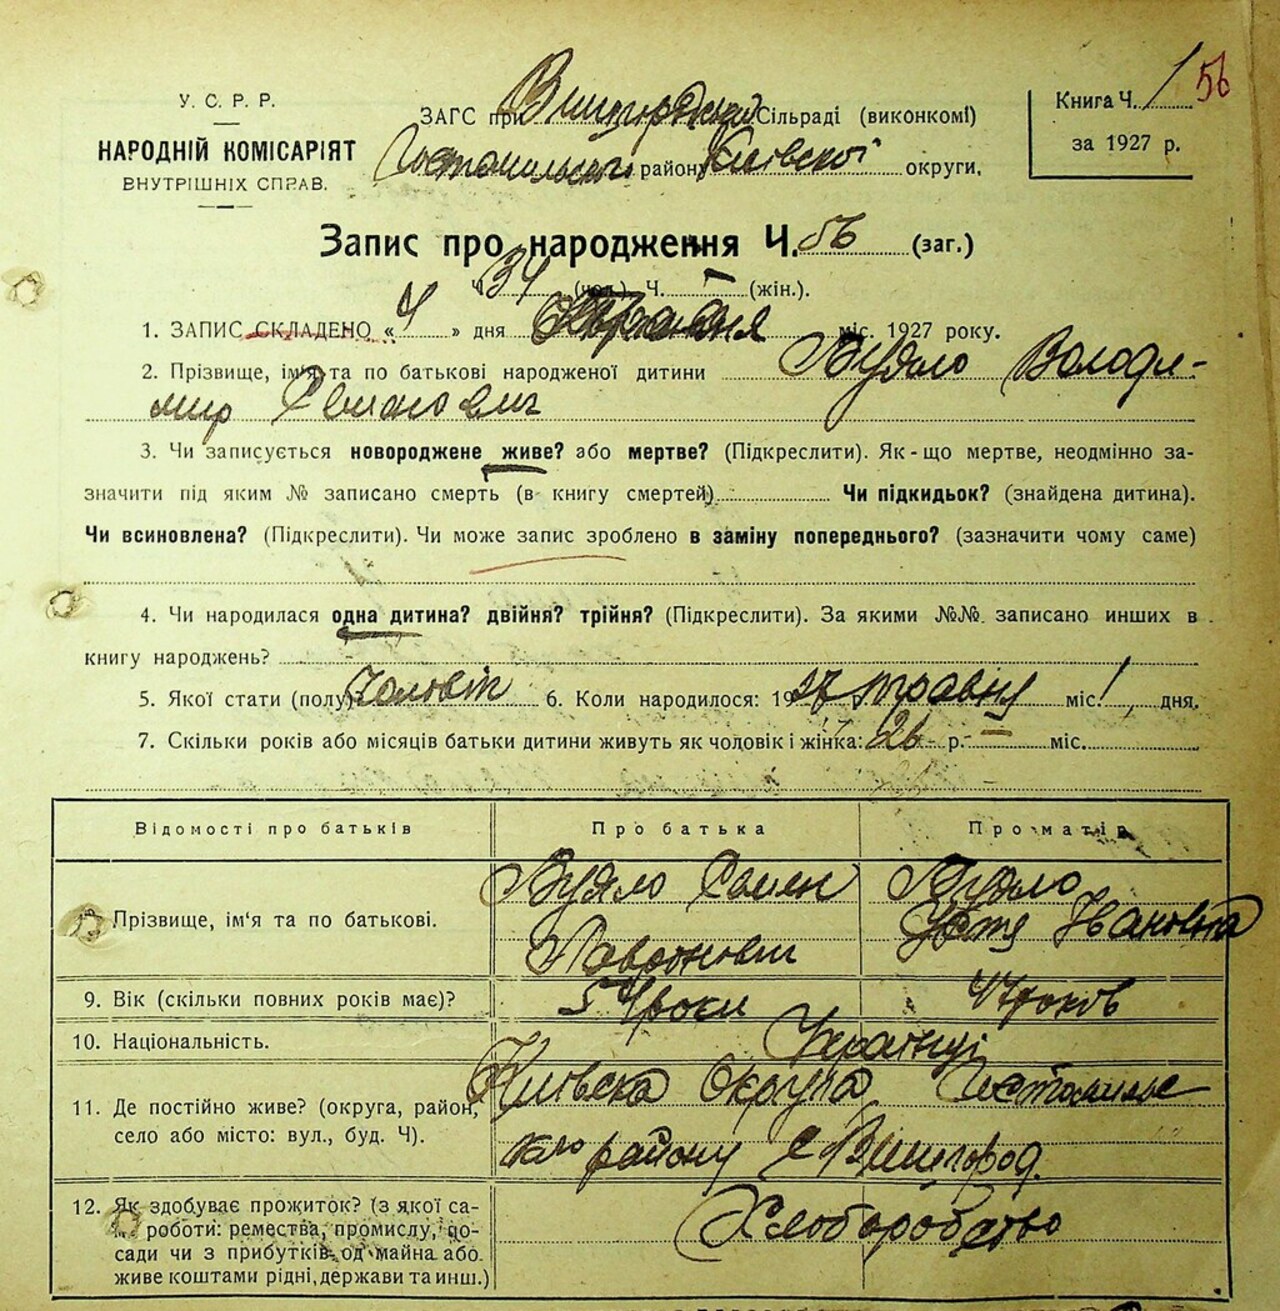 У. С. Р. Р.
НАРОДНІЙ КОМІСАРІЯТ
ВНУТРІШНІХ СПРАВ.
ЗАГС при Вишгородській Сільраді (виконкомі)
Гостомільського району Київської округи.
Книга Ч. 1 56
за 1927 р.
Запис про народження Ч. 56 (заг.)
Ч 34 (чол.) Ч. (жін.).
1. ЗАПИС СКЛАДЕНО « 4 » дня травня міс. 1927 року.
2. Прізвище, ім'я та по батькові народженої дитини Будло Володи-
мир Семенович
3. Чи записується новороджене живе? або мертве? (Підкреслити). Як-що мертве, неодмінно за-
значити під яким № записано смерть (в книгу смертей) Чи підкидьок? (знайдена дитина).
Чи всиновлена? (Підкреслити). Чи може запис зроблено в заміну попереднього? (зазначити чому саме)
4. Чи народилася одна дитина? двійня? трійня? (Підкреслити). За якими №№ записано инших в
книгу народжень?
5. Якої стати (полу) Чоловіч 6. Коли народилося: 1927 травня міс. 1, дня.
7. Скільки років або місяців батьки дитини живуть як чоловік і жінка: 26 р. — міс.
Відомості про батьків Про батька Про матір
Прізвище, ім'я та по батькові. Будло Семен Будло
Устя Івановна
9. Вік (скільки повних років має)? 54 роки 47 років
10. Національність. Українці
11. Де постійно живе? (округа, район, Київска округа Гостомильс
село або місто: вул., буд. Ч). кого району с Вишгород.
12. Як здобуває прожиток? (з якої са- Хлоборобство
роботи: ремества, промислу, по-
сади чи з прибутків од майна або
живе коштами рідні, держави та инш.)